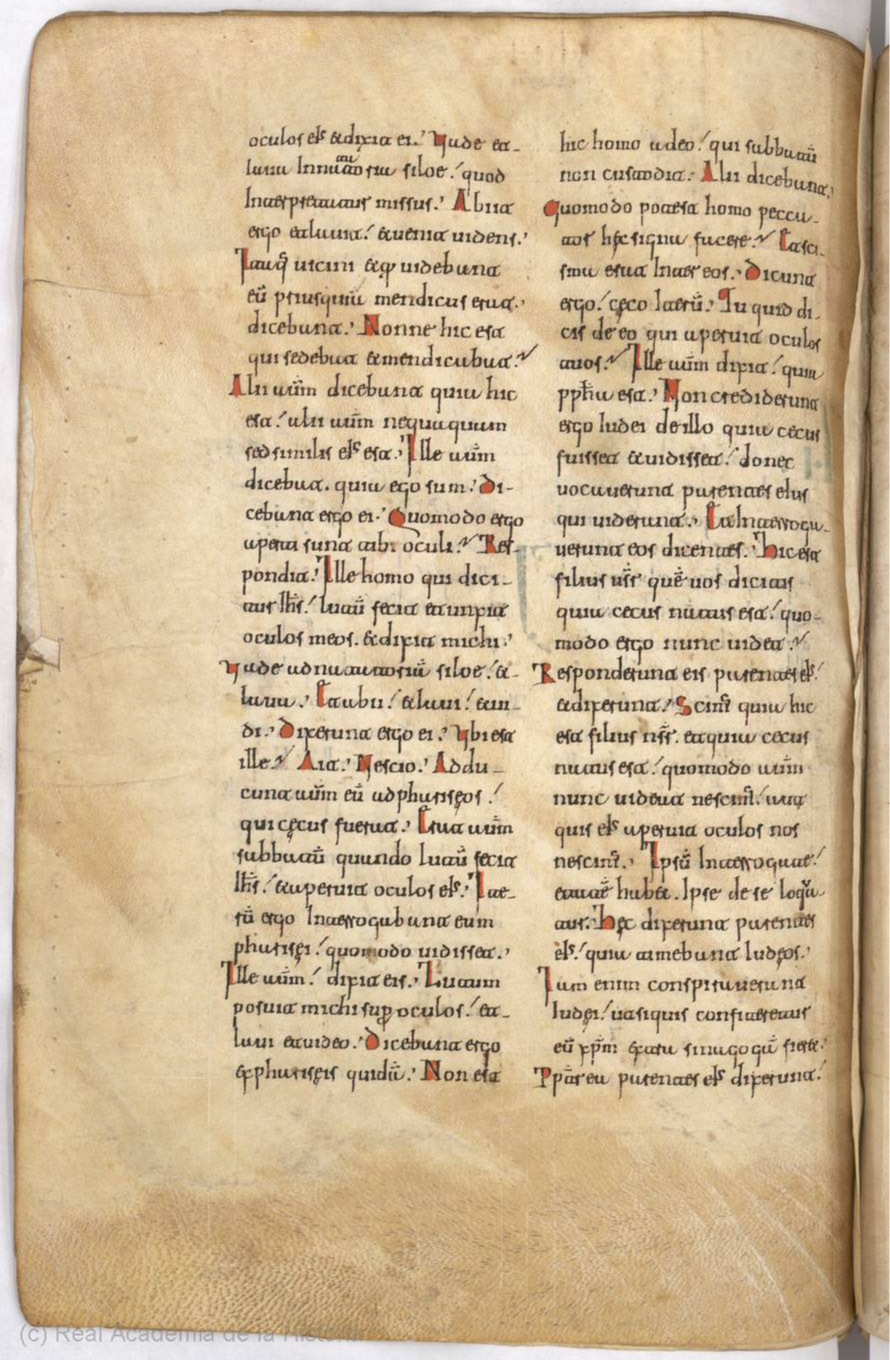 oculos eIs & dixit ei. Uade et-
laua In natatoria siloe. quod
Interpretatur missus. Abiit
ergo et lauit. & uenit uidens.
Itaq; uicini & q̄ uidebant
eū priusquā mendicus erat.
dicebant. Nonne hic est
qui sedebat & mendicabat.
Alii autm̄ dicebant quia hic
est. alii autm̄ nequaquam
sed similis eIs est. Ille autm̄
dicebat. quia ego sum. Di-
cebant ergo ei. Quomodo ergo
aperti sunt tibi oculi. Res-
pondit. Ille homo qui dici-
tur Ih̄s. lutū fecit et unxit
oculos meos. & dixit michi.
Uade ad natatoriā siloe. &-
laua. Et abii. & laui. & ui-
di. Dixerunt ergo ei. Ubi est
ille. Ait. Nescio. Addu-
cunt autm̄ eū ad phariseos.
qui cęcus fuerat. Erat autm̄
sabbatū quando lutū fecit
Ih̄s. & aperuit oculos eIs. Ite-
rū ergo Interrogabant eum
pharisęi. quomodo uidisset.
Ille autm̄. dixit eis. Lutum
posuit michi suꝑ oculos. et-
laui et uideo. Dicebant ergo
ex pharisęis quidā. Non est
hic homo a deo. qui sabbatū
non custodit. Alii dicebant.
Quomodo potest homo pecca-
tor hęc signa facere. Et sci-
sma erat Inter eos. Dicunt
ergo. cęco Iterū. Tu quid di-
cis de eo qui aperuit oculos
tuos. Ille autm̄ dixit. quia
pph̄a est. Non crediderunt
ergo Iudei de illo quia cecus
fuisset & uidisset. donec
uocauerunt parentes eIus
qui uiderat. Et Interroga-
uerunt eos dicentes. Hic est
filius us̄r quē uos dicitis
quia cecus natus est. quo-
modo ergo nunc uidet.
Responderunt eis parentes eIs.
& dixerunt. Scim̄s quia hic
est filius ns̄r. et quia cecus
natus est. quomodo autm̄
nunc uideat nescim̄s. aut
quis eIs aperuit oculos nos
nescim̄s. Ipsū Interrogate.
etatē habet. Ipse de se loqua-
tur. Hęc dixerunt parentes
eIs. quia timebant Iudęos.
Iam enim conspirauerunt
Iudęi. ut siquis confiteretur
eū xp̄m extra sinagogā fieret.
Pp̄tea parentes eIs dixerunt.
(c) Real Academia de la Historia